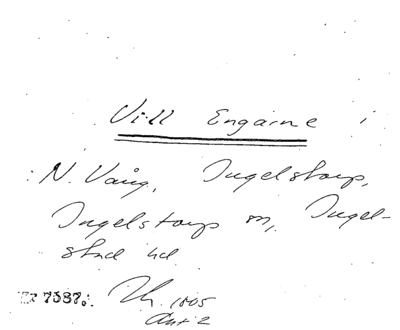 Vill Engarne i
N. Vång, Ingelstorp,
Ingelstorps sn, Ingel-
stad hd
7387. 1805
Akt 2